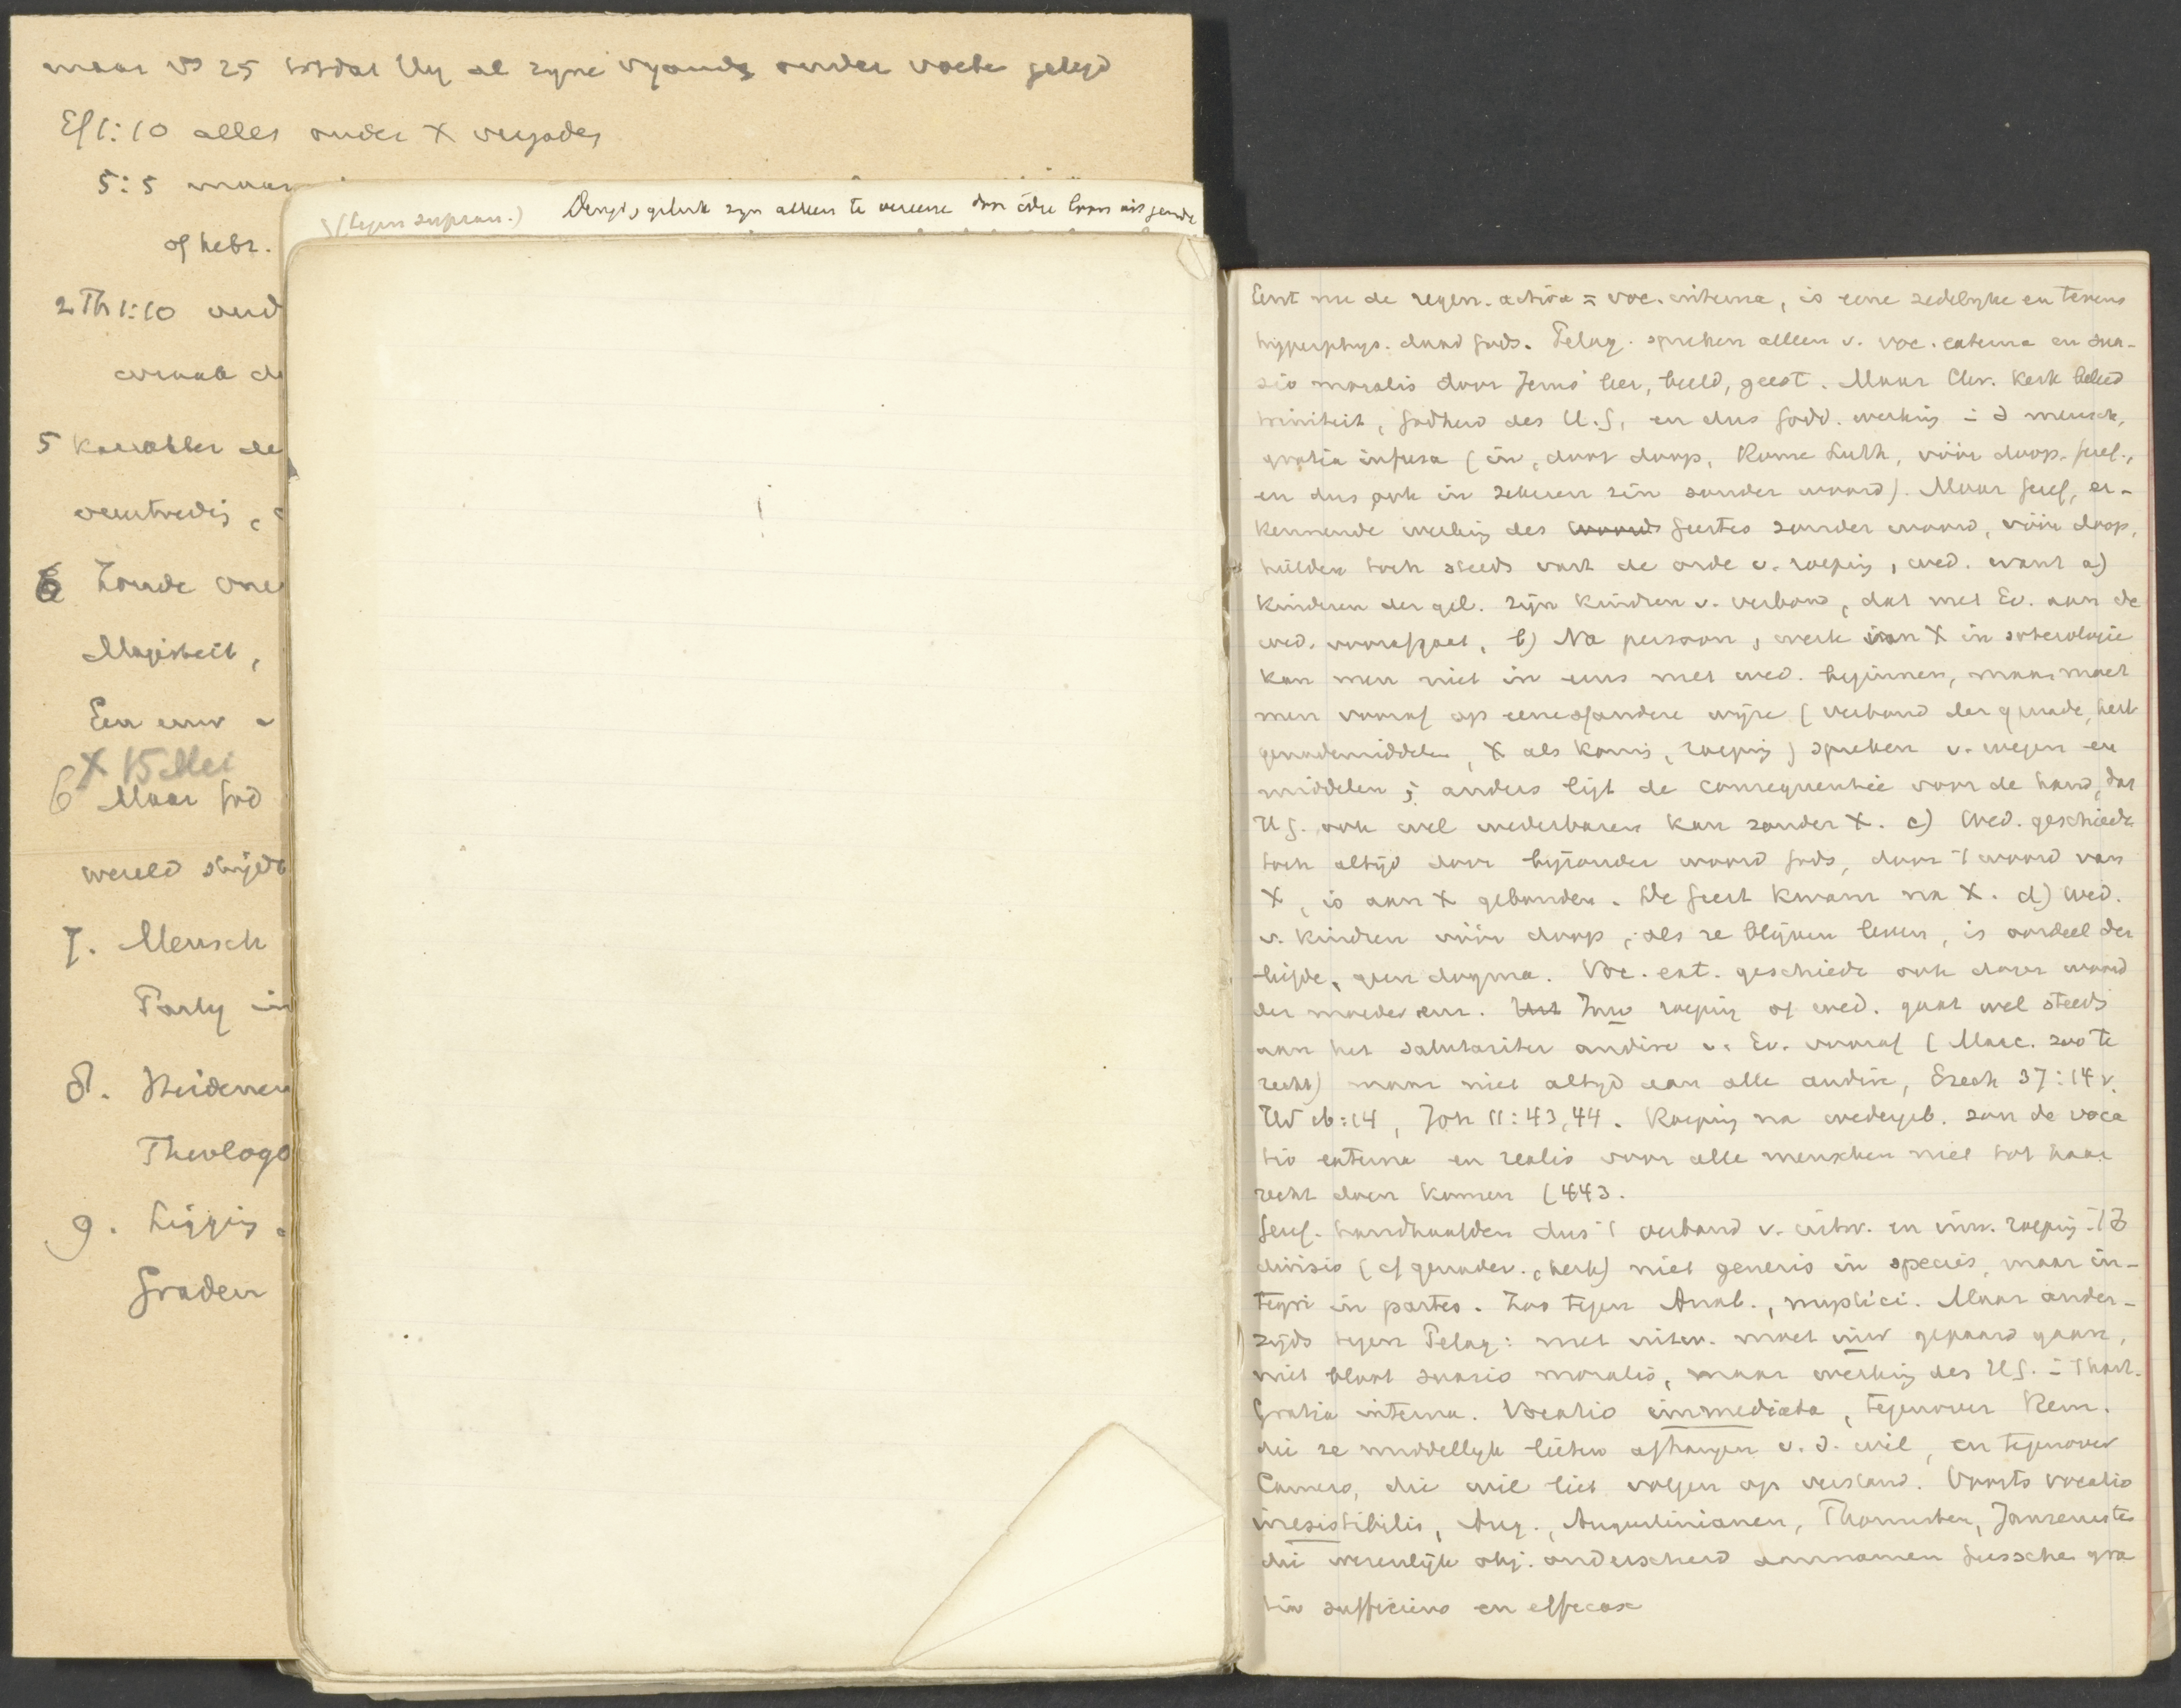 maar vs 25 totdat Hij al zyne vyands onder voete gelegd
Ef 1:10 alles onder X vergader
5:5 maar
of hebr.
2 Th 1:10 oud
5 karakter de
6 Zonde
Majesteit,
Een
X 15 Mei
6 Maar God
wereld strijdt
7. Mensch
Party in
8. Heidenen
Theologo
9. Ligging
Graden
(tegen supran.) Deugd, geluk zyn alleen te vereene door
Eerst nu de regen. activa = voc. interna, is eene zedelyke en tevens
hyperphys. daad Gods. Pelag. spreken alleen v. voc. externa en sua-
sio moralis door Jezus' leer, beeld, geest. Maar Chr. Kerk beleed
triniteit, Godheid des H.G. en dus Godd. werking i d mensch,
gratia infusa (in, door doop, Rome Luth, vóór doop. Geref.,
en dus ook in zekeren zin zonder woord). Maar Geref. er-
kennende werking des woords Geestes zonder woord, vóór doop,
hielden toch steeds vast de orde v. roeping, wed. want a)
kinderen der gel. zijn kindren v. verbond, dat met Ev. aan de
wed. voorafgaat, b) Na persoon, werk van X in soterologie
kan men niet in eens met wed. beginnen, maar moet
men vooraf op eene of andere wijze (verbond der genade, kerk
genademiddelen, X als koning, roeping) spreken v. wegen en
middelen; anders ligt de consequentie voor de hand, dat
H G. ook wel wederbaren kan zonder X. c) Wed. geschiedt
toch altijd door bijzonder woord Gods, door 't woord van
X, is aan X gebonden. De Geest kwam na X. d) Wed.
v. kindren vóór doop, als ze blijven leven, is oordeel der
liefde, geen dogma. Voc. ext. geschiedt ook door woord
der moeder enz. Het Inw roeping of wed. gaat wel steeds
aan het salutariter audire v. Ev. vooraf (Marc. zoo te
recht) maar niet altyd aan alle audire, Ezech 37:14 v.
Hd 16:14, Joh 11:43, 44. Roeping na wedergeb. zou de voca
tio externa en realis voor alle menschen niet tot haar
recht doen komen (443.
Geref. handhaafden dus 't verband v. uitw. en inw. roeping.
divisio (cf genadev., kerk) niet generis in species, maar in-
tegri in partes. Zoo tegen Anab., mystici. Maar ander-
zijds tegen Pelag: met uitw. moet inw gepaard gaan,
niet bloot suasio moralis, maar werking des H G. i 't hart.
Gratia interna. Vocatio immediata, tegenover Rem.
die ze middellyk lieten afhangen v. d. wil, en tegenover
Camero, die wil liet volgen op verstand. Voorts vocatio
irresistibilis, Aug., Augustinianen, Thomisten, Jansenisten
die wezenlijk obj. onderscheid aannamen tussche gra
tia sufficiens en efficax